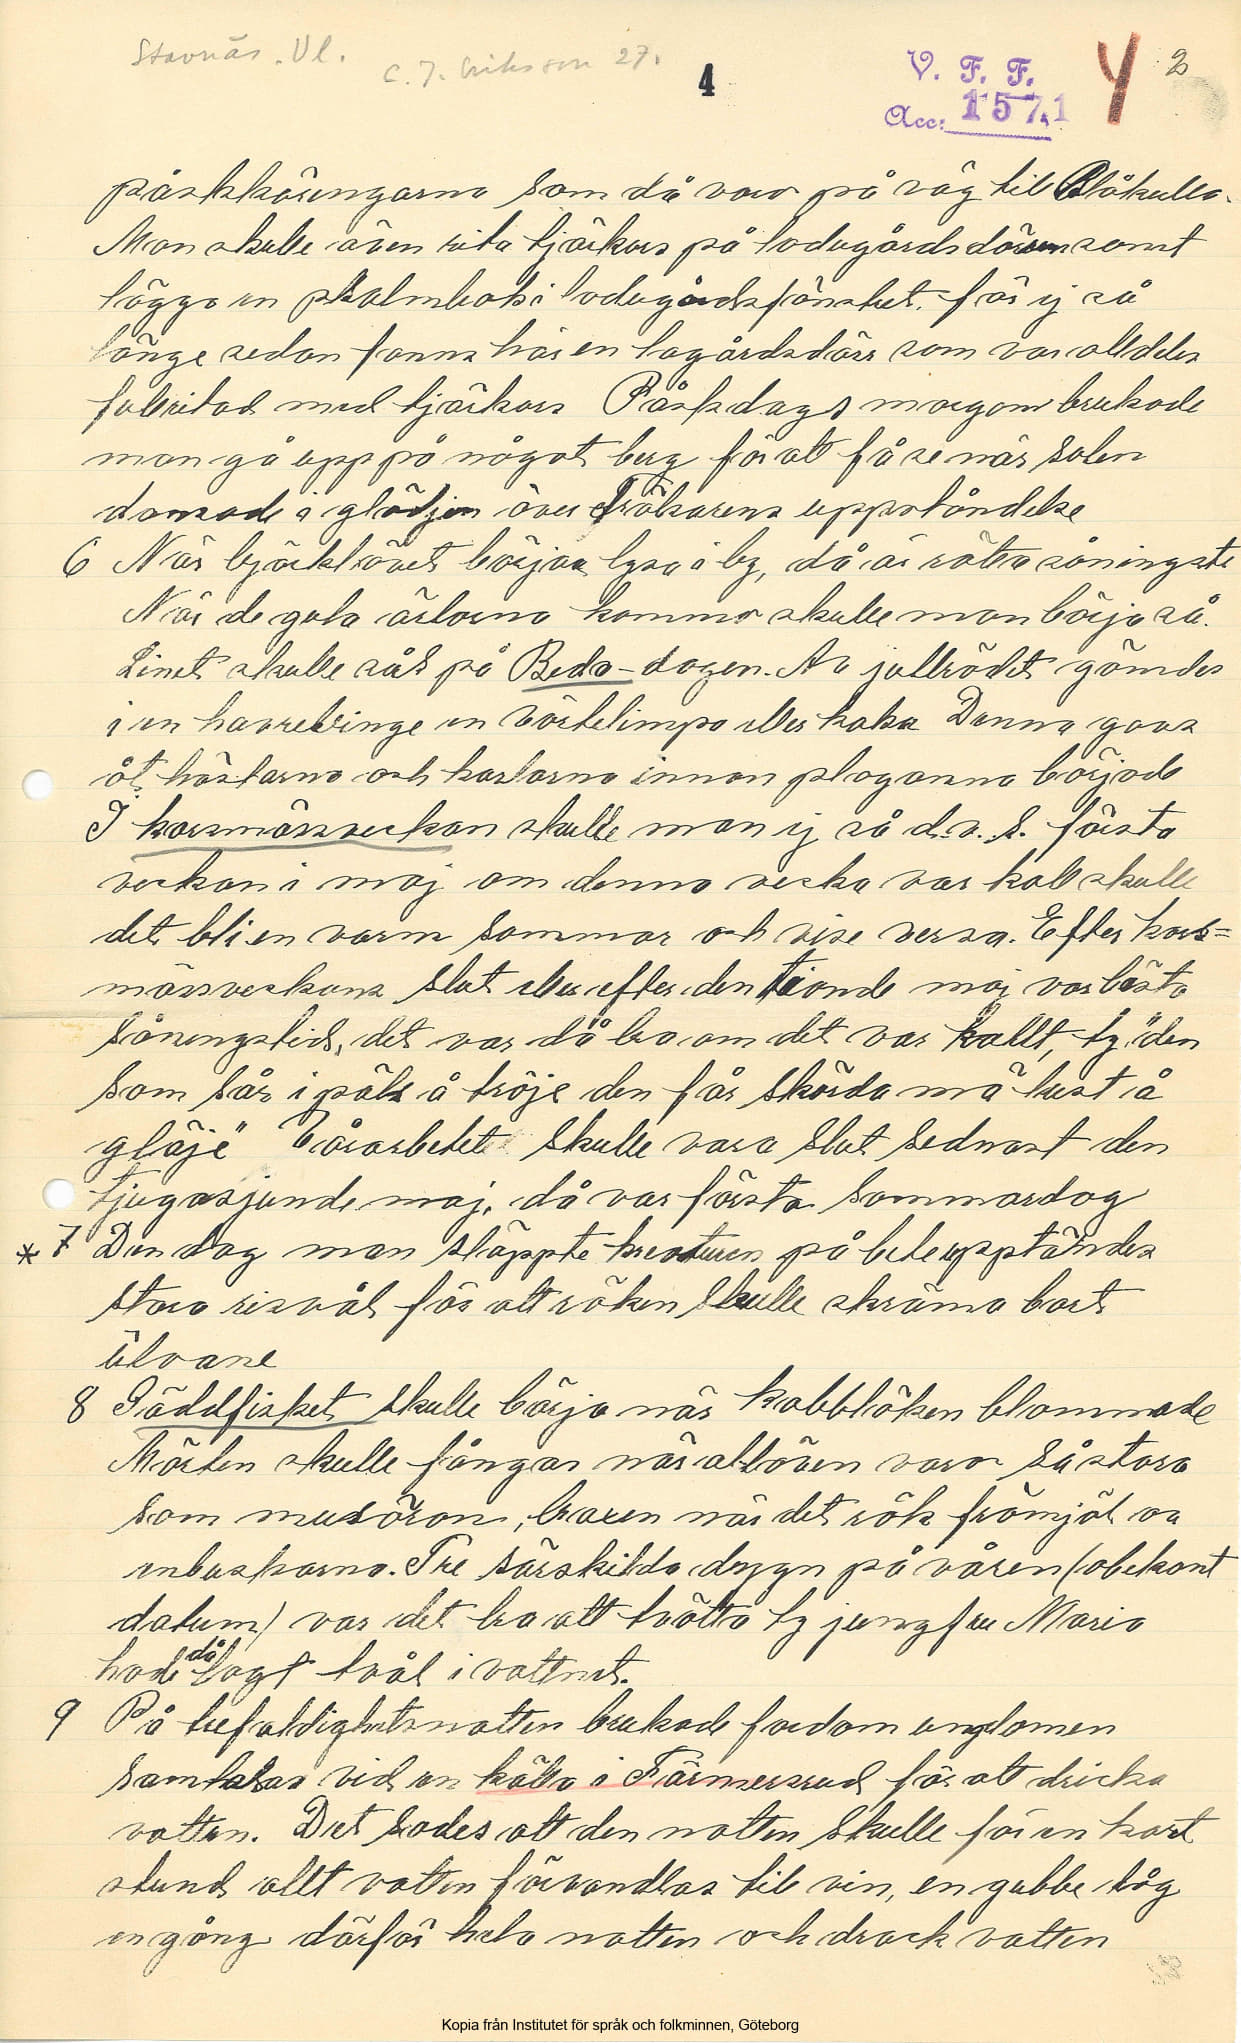 Stavnäs. Vl.
C. J. Eriksson 27.
4
V. F. F.
Acc: 1571
4
2
påskkäringarna som då voro på väg till Blåkulla.
Man skulle även rita tjärkors på ladugårdsdörren samt
lägga en psalmbok i ladugårdsfönstret. för ej så
länge sedan fanns här en lagårdsdörr som var alldeles
fullritad med tjärkors Påskdags morgon brukade
man gå upp på något berg för att få se när solen
dansade i glädjen över Frälsarens uppståndelse
6 När björklövet börjar lysa i by, då är rätta såningsti
När de gula ärlorna kommo skulle man börja så.
Linet skulle sås på Beda-dagen. Av julbrödet gömdes
i en havrebinge en vörtelimpa eller kaka Denna gavs
åt hästarna och karlarna innan plogarna började
I korsmässveckan skulle man ej så d.v.s. första
veckan i maj om denna vecka var kall skulle
det bli en varm sommar och vise versa. Efter kors=
mässveckans slut eller efter den tionde maj var bästa
såningstid, det var då bra om det var kallt, ty "den
som sår i päls å tröje den får skörda mä lust å
gläje" Vårarbetet skulle vara slut sednast den
tjugosjunde maj, då var första sommardag
* 7 Den dag man släppte kreaturen på bete upptändes
stora risvål för att röken skulle skrämma bort
ulvane
8 Gäddfisket skulle börja när kabblöken blommade
Mörten skulle fångas när allöven voro så stora
som musöron, braxen när det rök frömjöl av
enbuskarna. Tre särskilda dygn på våren (obekant
datum) var det bra att tvätta ty jungfru Maria
hade då lagt tvål i vattnet.
9 På trefaldighetsnatten brukade fordom ungdomen
samlas vid en källa i Färmersrud för att dricka
vatten. Det sades att den natten skulle för en kort
stund allt vatten förvandlas till vin, en gubbe låg
en gång därför hela natten och drack vatten
Kopia från Institutet för språk och folkminnen, Göteborg